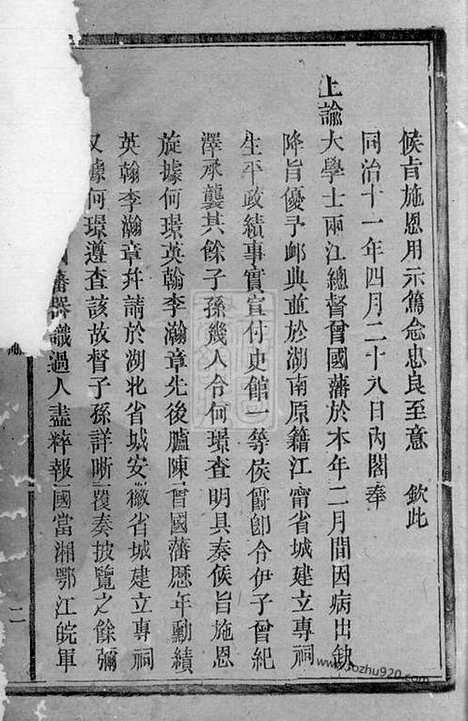 候旨施恩用示篤念忠良至意 欽此
同治十一年四月二十八日內閣奉
上諭大學士兩江總督曾國藩於本年二月間因病出缺
降旨優予卹典並於湖南原籍江甯省城建立專祠
生平政績事實宣付史館一等侯爵卽令伊子曾紀
澤承襲其餘子孫幾人令何璟查明具奏候旨施恩
旋據何璟英翰李瀚章先後臚陳曾國藩歷年勳績
英翰李瀚章幷請於湖北省城安徽省城建立專祠
又據何璟遵查該故督子孫詳晰覆奏披覽之餘彌
國藩器識過人盡粹報國當湘鄂江皖軍
二
www.sozhu920.com